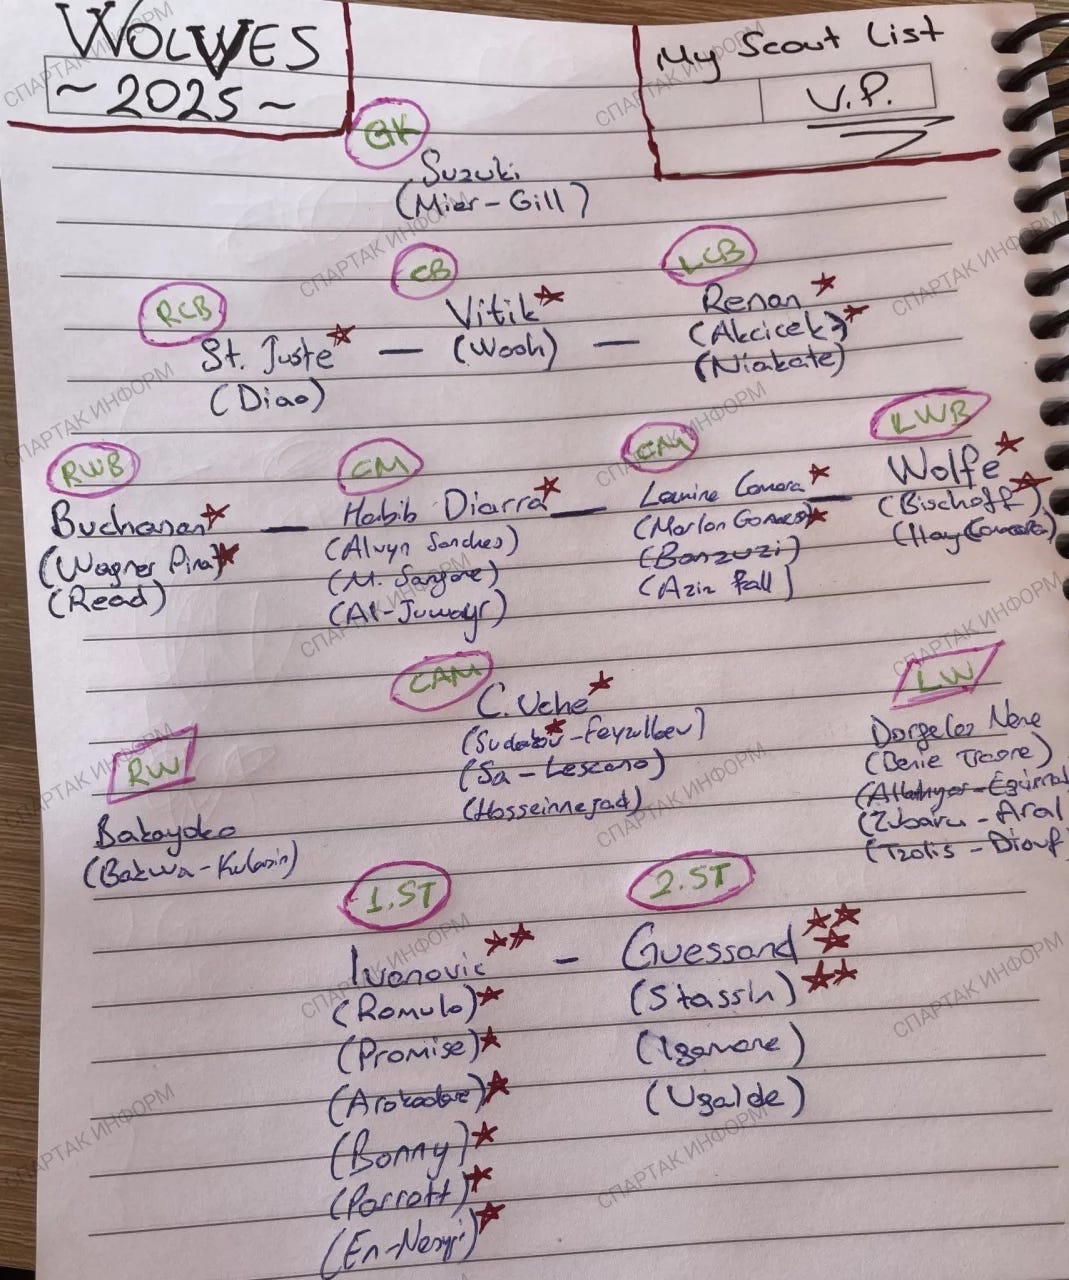 WOLWES
~ 2025 ~
My Scout List
V.P.
GK
Suzuki
(Mier - Gill)
RCB
CB
LCB
St. Juste — Vitik — Renan
(Diao)
(Wooh)
(Akcicek)
(Niakate)
RWB
CM
CM
LWB
Buchanan — Habib Diarra — Lamine Camara — Wolfe
(Wagner Pina)
(Read)
(Alvyn Sanches)
(M. Sangare)
(Al-Juwayr)
(Marlon Gomes)
(Banzuzi)
(Aziz Fall)
(Bischoff)
(Hay Camara)
CAM
C. Uche
(Sudakov - Feyzullaev)
(Sa - Lescano)
(Hosseinnejad)
RW
Bakayoko
(Bakwa - )
LW
Dorgeles Nene
(Benie Traore)
(Allahyar - Eguinal
(Zubaru - Aral
(Tzolis - Diouf)
1.ST
2.ST
Ivanovic - Guessand
(Romulo)
(Promise)
(Arokodare)
(Bonny)
(Parrott)
(En-Nesyri)
(Stassin)
(Igamane)
(Ugalde)
СПАРТАК ИНФОРМ